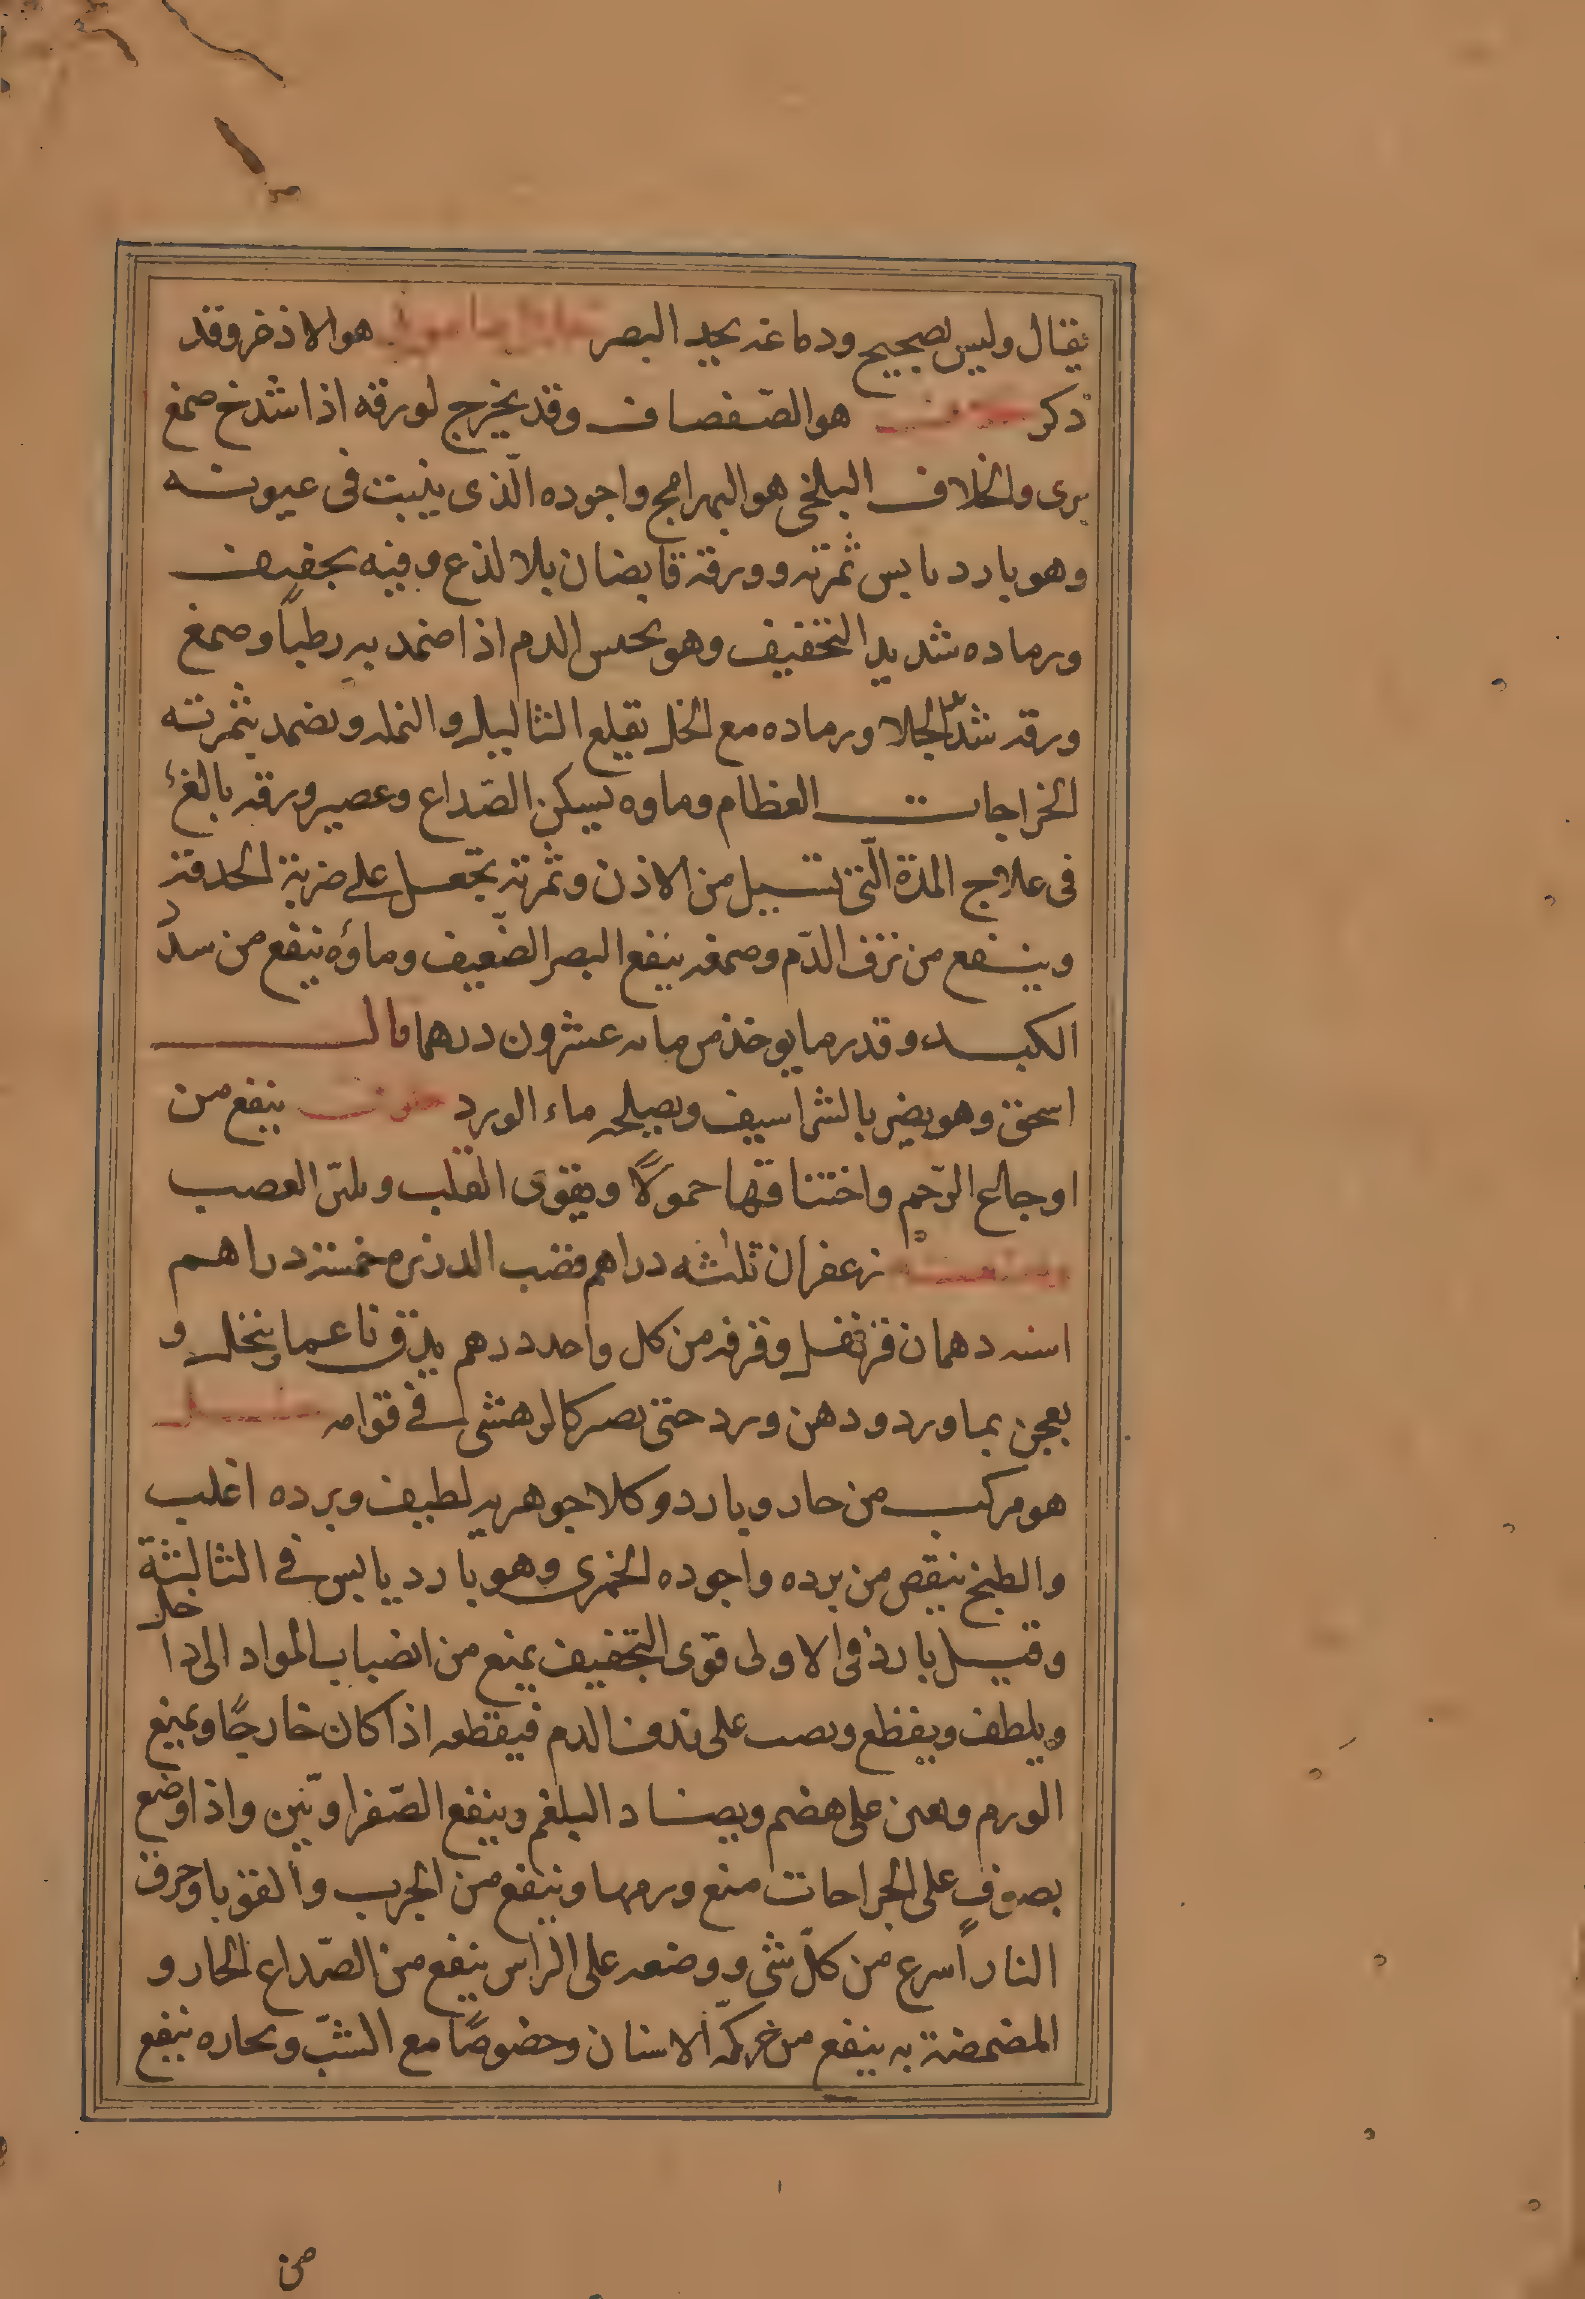 يقال وليس بصحيح ودماغه يحد البصر هو الاذخر وقد
ذكر هو الصّفصاف وقد يخرج لورقه اذا شدخ صمغ
برى والخلاف البلخى هو البهرامج واجوده الّذى ينبت فى عيونه
وهو بارد يابس ثمرته وورقه قابضان بلا لذع وفيه تجفيف
ورماده شديد التخفيف وهو يحبس الدم اذا ضمد به رطباً وصمغ
ورقه شدّ الجلا ورماده مع الخل يقلع الثاليل والنمله ويضمد بثمرته
الخراجات العظام وماوه يسكن الصّداع وعصير ورقه بالغ
فى علاج المدّة الّتى تسيل من الاذن وثمرته تجعل على ضربة الحدقة
وينفع من نزف الدّم وصمغه ينفع البصر الضّعيف وماؤه ينفع من سدد
الكبد وقدر ما يوخذ من مائه عشرون درهما قال
اسحق وهو يضر بالشراسيف ويصلحه ماء الورد ينفع من
اوجاع الرّحم واختناقها حمولاً ويقوى القلب ويلين العصب
زعفران ثلثه دراهم قصب الذريره خمسة دراهم
اسنه دهمان قرنفل وقرفه من كل واحد درهم يدق ناعما وينخل و
يعجن بماورد ودهن ورد حتى يصير كالرهشى فى قوامه خل
هو مركب من حار وبارد وكلا جوهريه لطيف وبرده اغلب
والطبخ ينقص من برده واجوده الخمرى وهو بارد يابس فى الثالثة
وقيل بارد فى الاولى قوّى التجفيف يمنع من انصباب المواد الى داخل
ويلطف ويقطع ويصب على نزف الدم فيقطعه اذا كان خارجاً ويمنع
الورم ويعين على هضم ويضاد البلغم وينفع الصّفراويّين واذا وضع
بصوف على الجراحات منع ورمها وينفع من الجرب والقوبا وحرق
النار اسرع من كلّ شى ووضعه على الراس ينفع من الصّداع الحار و
المضمضة به ينفع من حركة الاسنان وخصوصاً مع الشبّ وبخاره ينفع
من